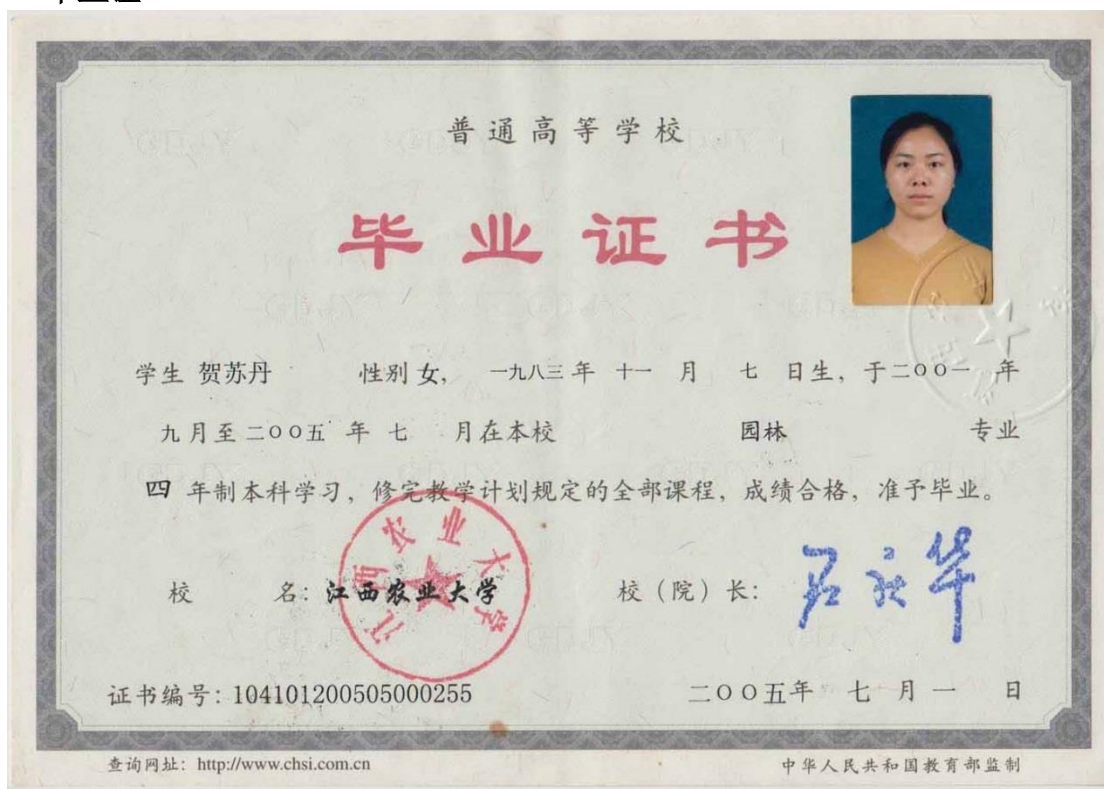 普通高等学校
毕业证书
学生 贺苏丹 性别 女, 一九八三 年 十一 月 七 日生, 于二〇〇一 年
九 月至 二〇〇五 年 七 月在本校 园林 专业
四 年制本科学习, 修完教学计划规定的全部课程, 成绩合格, 准予毕业。
江西农业大学
校 名: 江西农业大学 校 (院) 长:
证书编号: 104101200505000255 二〇〇五年 七 月 一 日
查询网址: http://www.chsi.com.cn 中华人民共和国教育部监制